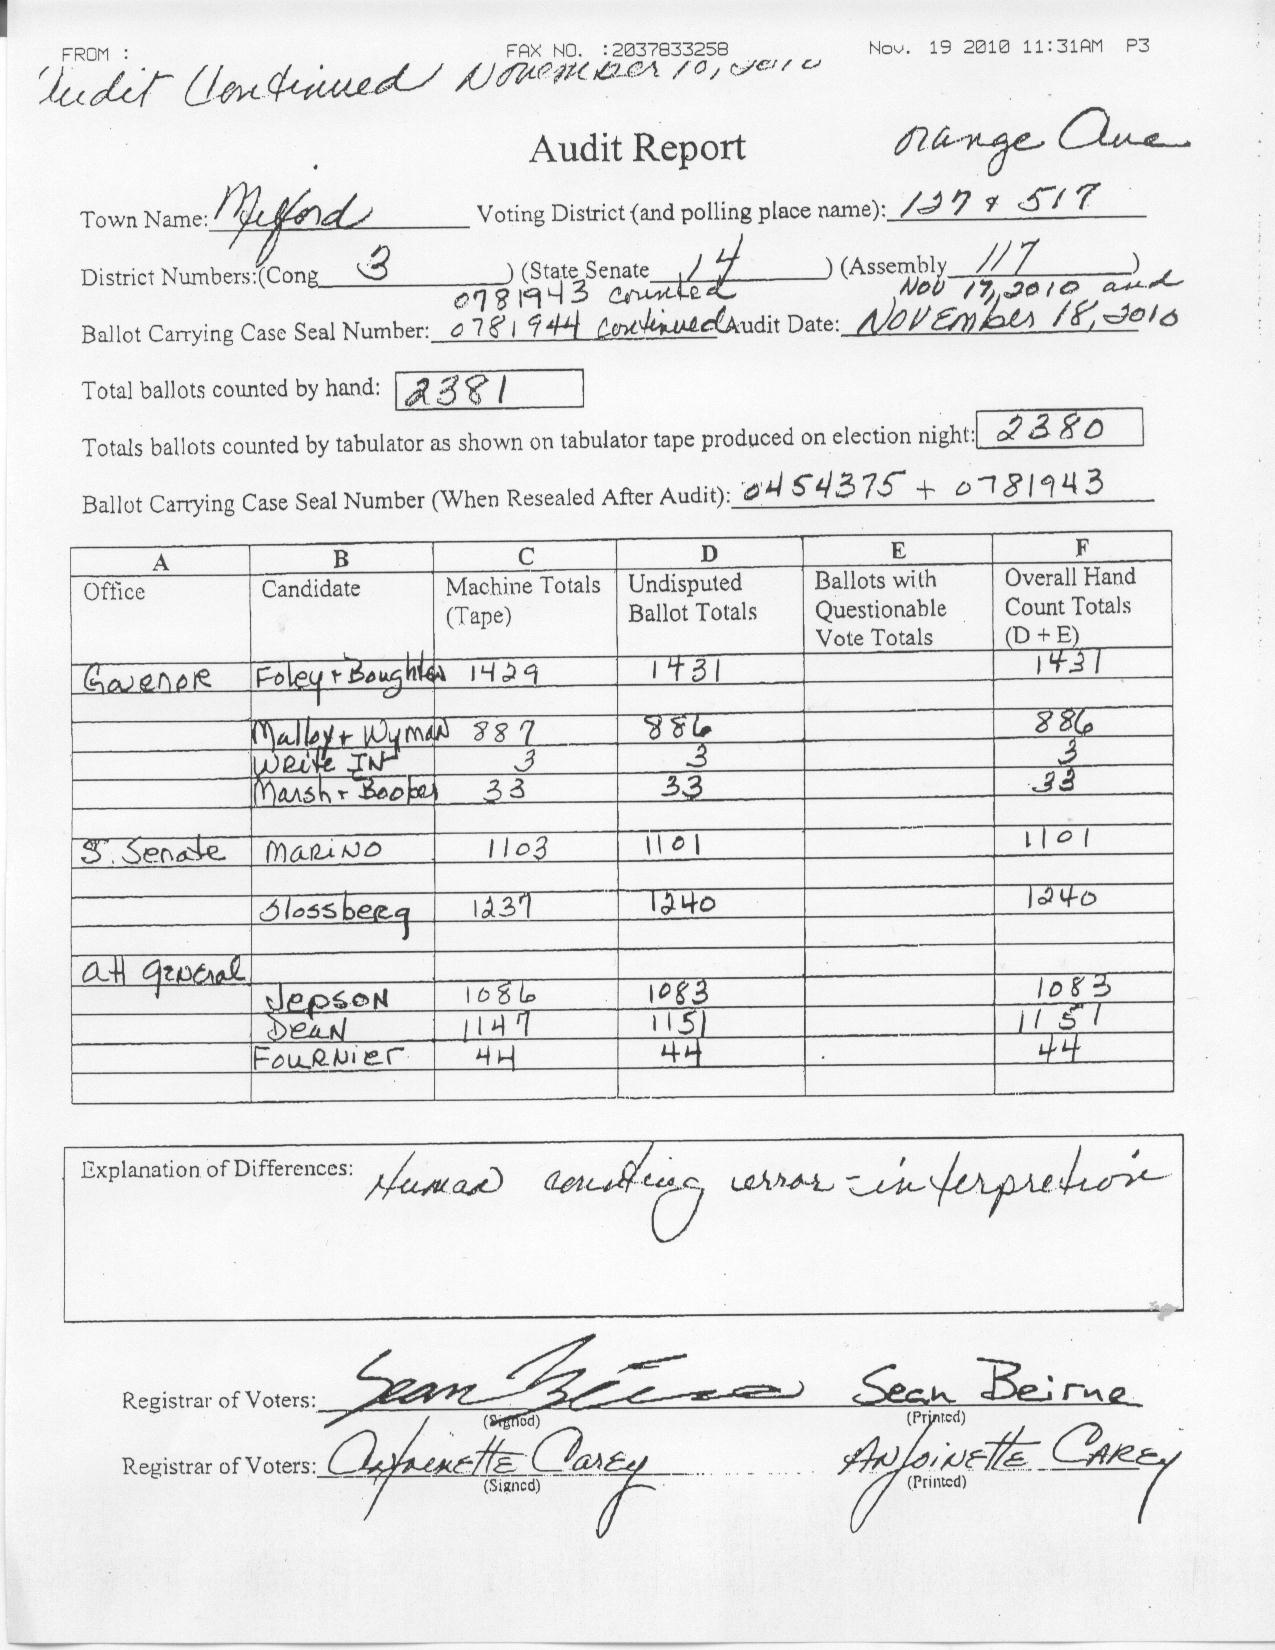 FROM : FAX NO. :2037833258 Nov. 19 2010 11:31AM P3
Audit Continued November 10, 2010
Audit Report
Orange Ave
Town Name: Milford Voting District (and polling place name): 127 & 517
District Numbers:(Cong 3 ) (State Senate 14 ) (Assembly 117 )
0781943 counted NOV 17, 2010 and
Ballot Carrying Case Seal Number: 0781944 continued Audit Date: NOVEMber 18, 2010
Total ballots counted by hand: 2381
Totals ballots counted by tabulator as shown on tabulator tape produced on election night: 2380
Ballot Carrying Case Seal Number (When Resealed After Audit): 0454375 + 0781943
A B C D E F
Office Candidate Machine Totals (Tape) Undisputed Ballot Totals Ballots with Questionable Vote Totals Overall Hand Count Totals (D + E)
Govenor Foley + Boughton 1429 1431 1431
Malloy + Wyman 887 886 886
Write IN 3 3 3
Marsh + 33 33 33
S. Senate MARINO 1103 1101 1101
Slossberg 1237 1240 1240
Att General
Jepson 1086 1083 1083
Dean 1147 1151 1151
Fournier 44 44 44
Explanation of Differences: Human counting error - interpretion
Registrar of Voters: Sean Beirne Sean Beirne
(Signed) (Printed)
Registrar of Voters: Antoinette Carey ANtoiNETTE CAREY
(Signed) (Printed)